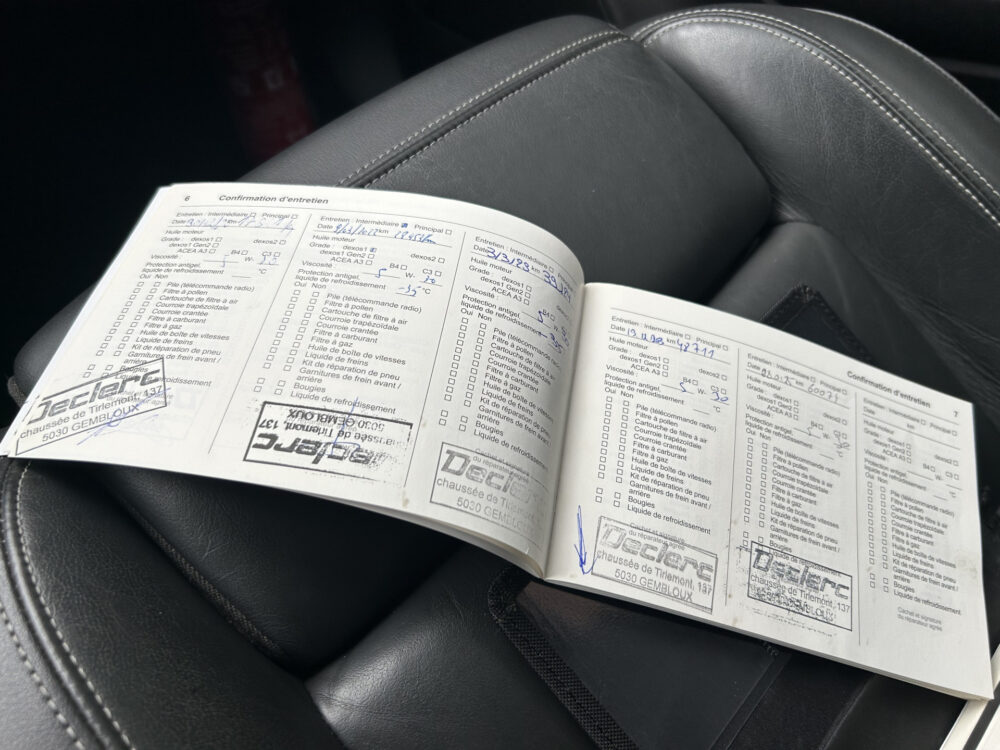 6 Confirmation d'entretien
Entretien : Intermédiaire Principal
Date km
Huile moteur
Grade : dexos1 dexos2
dexos1 Gen2
ACEA A3 B4 C3
Viscosité : 5 W.
Protection antigel,
liquide de refroidissement °C
Oui Non
Pile (télécommande radio)
Filtre à pollen
Cartouche de filtre à air
Courroie trapézoïdale
Courroie crantée
Filtre à carburant
Filtre à gaz
Huile de boîte de vitesses
Liquide de freins
Kit de réparation de pneu
Garnitures de frein avant /
arrière
refroidissement
Declerc
chaussée de Tirlemont, 137
5030 GEMBLOUX
Entretien : Intermédiaire Principal
Date km
Huile moteur
Grade : dexos1 dexos2
dexos1 Gen2
ACEA A3 B4 C3
Viscosité : 5 W. 30
Protection antigel,
liquide de refroidissement -35 °C
Oui Non
Pile (télécommande radio)
Filtre à pollen
Cartouche de filtre à air
Courroie trapézoïdale
Courroie crantée
Filtre à carburant
Filtre à gaz
Huile de boîte de vitesses
Liquide de freins
Kit de réparation de pneu
Garnitures de frein avant /
arrière
Bougies
Liquide de refroidissement
Declerc
chaussée de Tirlemont, 137
5030 GEMBLOUX
Entretien : Intermédiaire
Date 3/3/23 km
Huile moteur
Grade : dexos1
dexos1 Gen2
ACEA A3 B4
Viscosité : 5 W.
Protection antigel,
liquide de refroidissement
Oui Non
Pile (télécommande radio)
Filtre à pollen
Cartouche de filtre à air
Courroie trapézoïdale
Courroie crantée
Filtre à carburant
Filtre à gaz
Huile de boîte de vitesses
Liquide de freins
Kit de réparation de pneu
Garnitures de frein avant /
arrière
Bougies
Liquide de refroidissement
Cachet et signature
du réparateur agréé
Declerc
chaussée de Tirlemont
5030 GEMBLOUX
Confirmation d'entretien 7
Entretien : Intermédiaire Principal
Date km 48711
Huile moteur
Grade : dexos1 dexos2
dexos1 Gen2
ACEA A3 B4 C3
Viscosité : 5 W. 30
Protection antigel,
liquide de refroidissement °C
Oui Non
Pile (télécommande radio)
Filtre à pollen
Cartouche de filtre à air
Courroie trapézoïdale
Courroie crantée
Filtre à carburant
Filtre à gaz
Huile de boîte de vitesses
Liquide de freins
Kit de réparation de pneu
Garnitures de frein avant /
arrière
Bougies
Liquide de refroidissement
Cachet et signature
du réparateur agréé
Declerc
chaussée de Tirlemont, 137
5030 GEMBLOUX
Entretien : Intermédiaire Principal
Date km
Huile moteur
Grade : dexos1 dexos2
dexos1 Gen2
ACEA A3 B4 C3
Viscosité : 5 W.
Protection antigel,
liquide de refroidissement °C
Oui Non
Pile (télécommande radio)
Filtre à pollen
Cartouche de filtre à air
Courroie trapézoïdale
Courroie crantée
Filtre à carburant
Filtre à gaz
Huile de boîte de vitesses
Liquide de freins
Kit de réparation de pneu
Garnitures de frein avant /
arrière
Bougies
Declerc
chaussée de Tirlemont, 137
GEMBLOUX
Entretien : Intermédiaire Principal
Date km
Huile moteur
Grade : dexos1 dexos2
dexos1 Gen2
ACEA A3 B4 C3
Viscosité : W.
Protection antigel,
liquide de refroidissement °C
Oui Non
Pile (télécommande radio)
Filtre à pollen
Cartouche de filtre à air
Courroie trapézoïdale
Courroie crantée
Filtre à carburant
Filtre à gaz
Huile de boîte de vitesses
Liquide de freins
Kit de réparation de pneu
Garnitures de frein avant /
arrière
Bougies
Liquide de refroidissement
Cachet et signature
du réparateur agréé